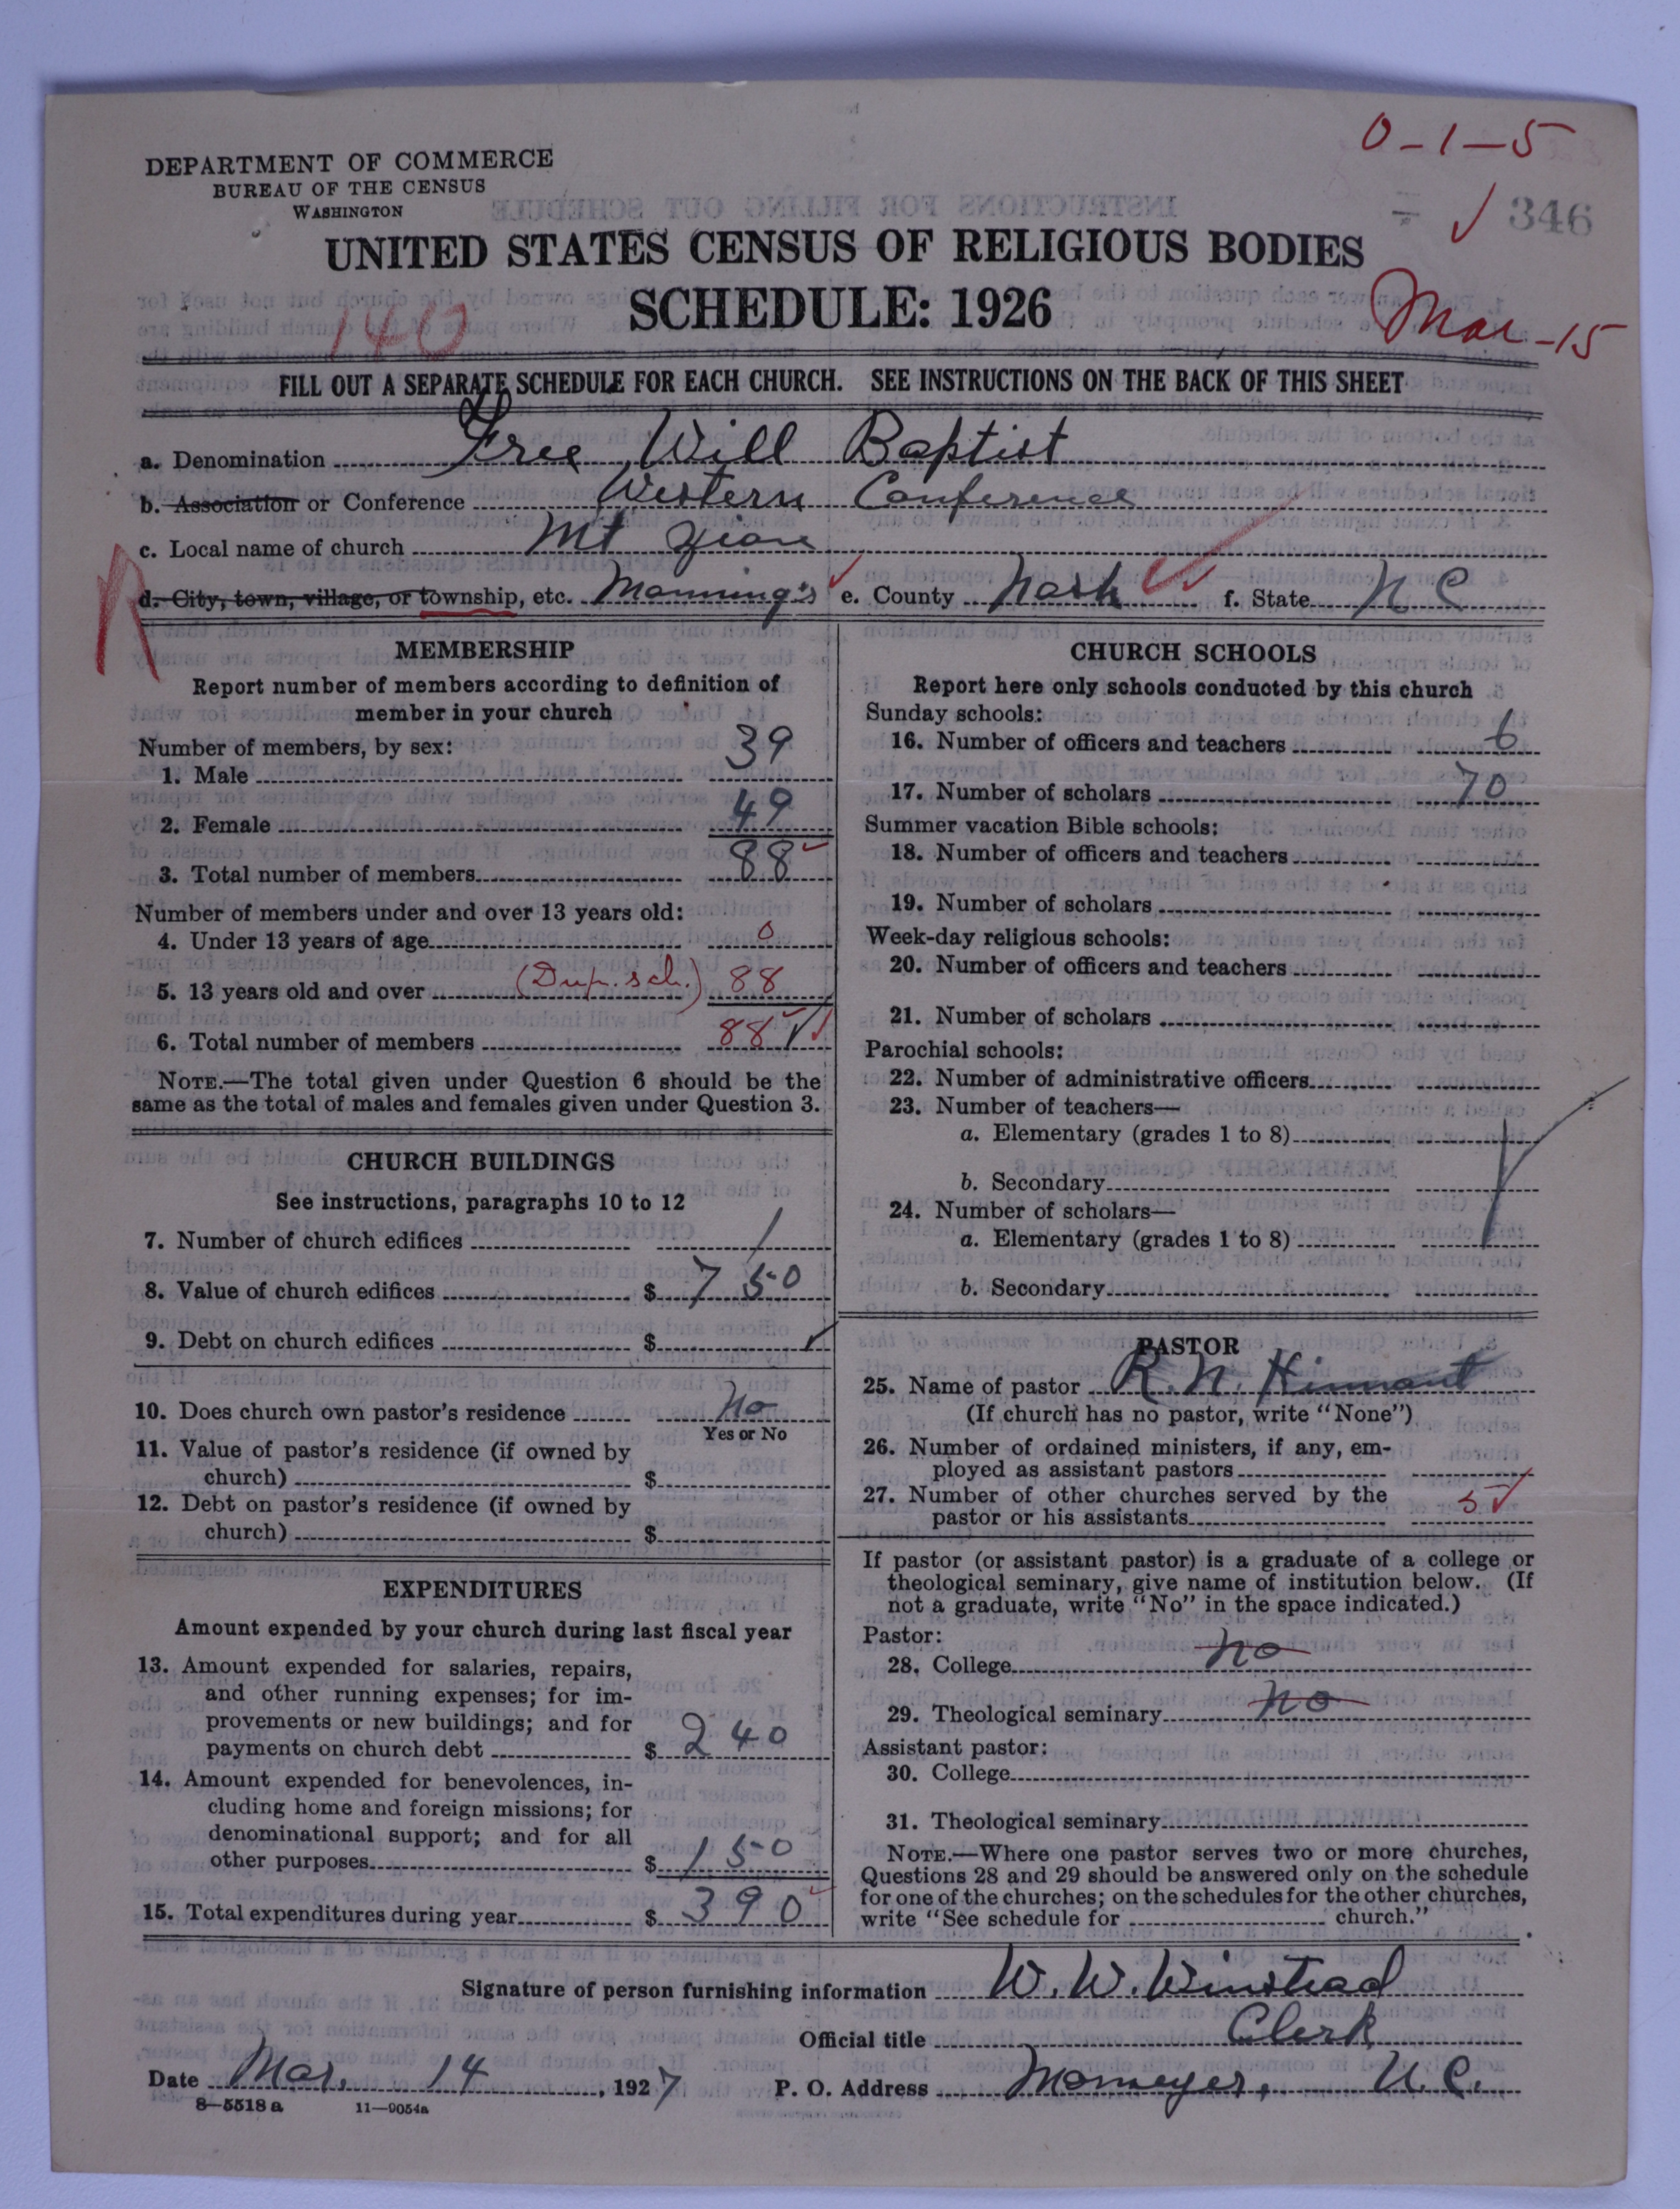 0-1-5
DEPARTMENT OF COMMERCE
BUREAU OF THE CENSUS
WASHINGTON
346
UNITED STATES CENSUS OF RELIGIOUS BODIES
SCHEDULE: 1926
140
Mar-15
FILL OUT A SEPARATE SCHEDULE FOR EACH CHURCH. SEE INSTRUCTIONS ON THE BACK OF THIS SHEET
a. Denomination Free Will Baptist
b. Association or Conference Western Conference
c. Local name of church Mt Zion
R
d. City, town, village, or township, etc. Manning's e. County Nash f. State N C
MEMBERSHIP
Report number of members according to definition of
member in your church
Number of members, by sex:
1. Male 39
2. Female 49
3. Total number of members 88
Number of members under and over 13 years old:
4. Under 13 years of age 0
5. 13 years old and over (Dup. sch.) 88
6. Total number of members 88
NOTE.—The total given under Question 6 should be the
same as the total of males and females given under Question 3.
CHURCH BUILDINGS
See instructions, paragraphs 10 to 12
7. Number of church edifices 1
8. Value of church edifices $ 750
9. Debt on church edifices $
10. Does church own pastor's residence No
Yes or No
11. Value of pastor's residence (if owned by
church) $
12. Debt on pastor's residence (if owned by
church) $
EXPENDITURES
Amount expended by your church during last fiscal year
13. Amount expended for salaries, repairs,
and other running expenses; for im-
provements or new buildings; and for
payments on church debt $ 240
14. Amount expended for benevolences, in-
cluding home and foreign missions; for
denominational support; and for all
other purposes $ 150
15. Total expenditures during year $ 390
CHURCH SCHOOLS
Report here only schools conducted by this church
Sunday schools:
16. Number of officers and teachers 6
17. Number of scholars 70
Summer vacation Bible schools:
18. Number of officers and teachers
19. Number of scholars
Week-day religious schools:
20. Number of officers and teachers
21. Number of scholars
Parochial schools:
22. Number of administrative officers
23. Number of teachers—
a. Elementary (grades 1 to 8)
b. Secondary
24. Number of scholars—
a. Elementary (grades 1 to 8)
b. Secondary
PASTOR
25. Name of pastor R. N. Hinnant
(If church has no pastor, write "None")
26. Number of ordained ministers, if any, em-
ployed as assistant pastors
27. Number of other churches served by the
pastor or his assistants 5
If pastor (or assistant pastor) is a graduate of a college or
theological seminary, give name of institution below. (If
not a graduate, write "No" in the space indicated.)
Pastor:
28. College No
29. Theological seminary No
Assistant pastor:
30. College
31. Theological seminary
NOTE.—Where one pastor serves two or more churches,
Questions 28 and 29 should be answered only on the schedule
for one of the churches; on the schedules for the other churches,
write "See schedule for church."
Signature of person furnishing information W. W. Winstead
Official title Clerk
Date Mar. 14, 1927 P. O. Address Momeyer, N. C.
8-5518a 11-9054a